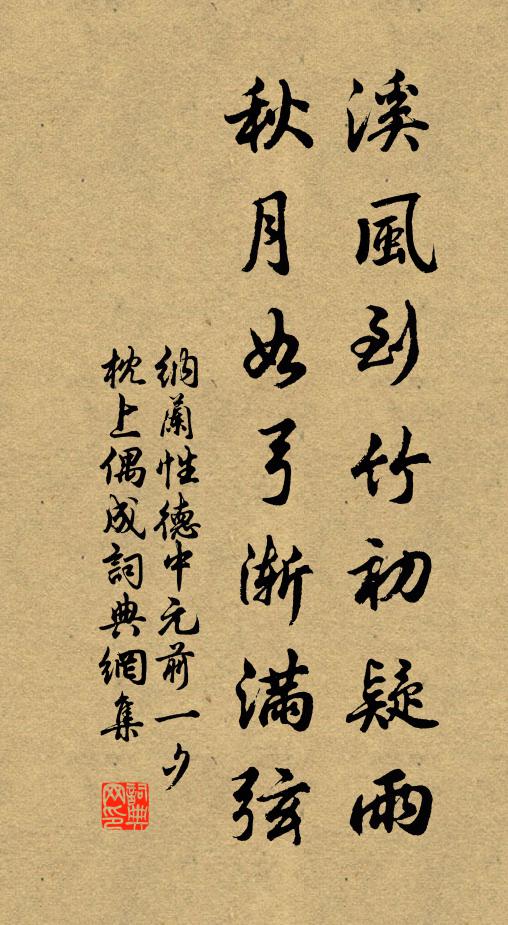 溪風到竹初疑雨
秋月如弓漸滿弦
納蘭性德中元前一夕
枕上偶成詞典網集
詞典
网印